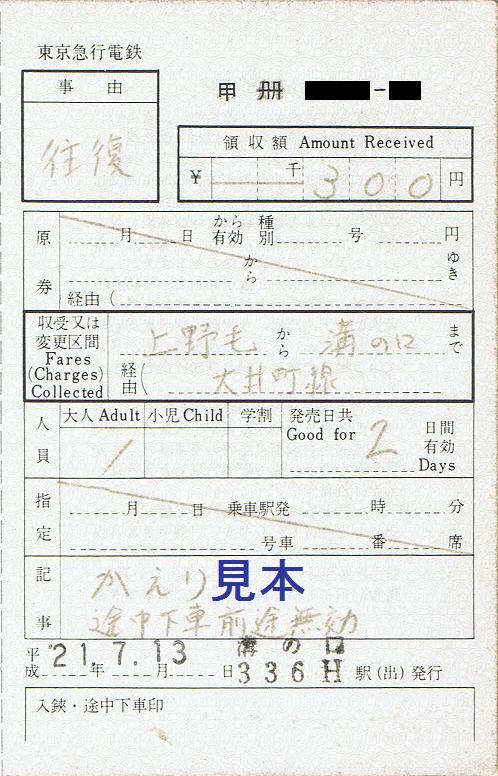 東京急行電鉄
事由
往復
甲 冊 -
領収額 Amount Received
¥ 千 300円
原券
月 日 から有効 種別 号 円
から ゆき
経由(
収受又は変更区間
Fares (Charges) Collected
上野毛 から 溝の口 まで
経由( 大井町線
人員
大人 Adult 小児 Child 学割
1
発売日共 Good for 2 日間有効 Days
指定
月 日 乗車駅発 時 分
号車 番 席
記事
かえり 見本
途中下車前途無効
平成 21.7.13 年 月 日 溝の口 336H 駅(出)発行
入鋏・途中下車印